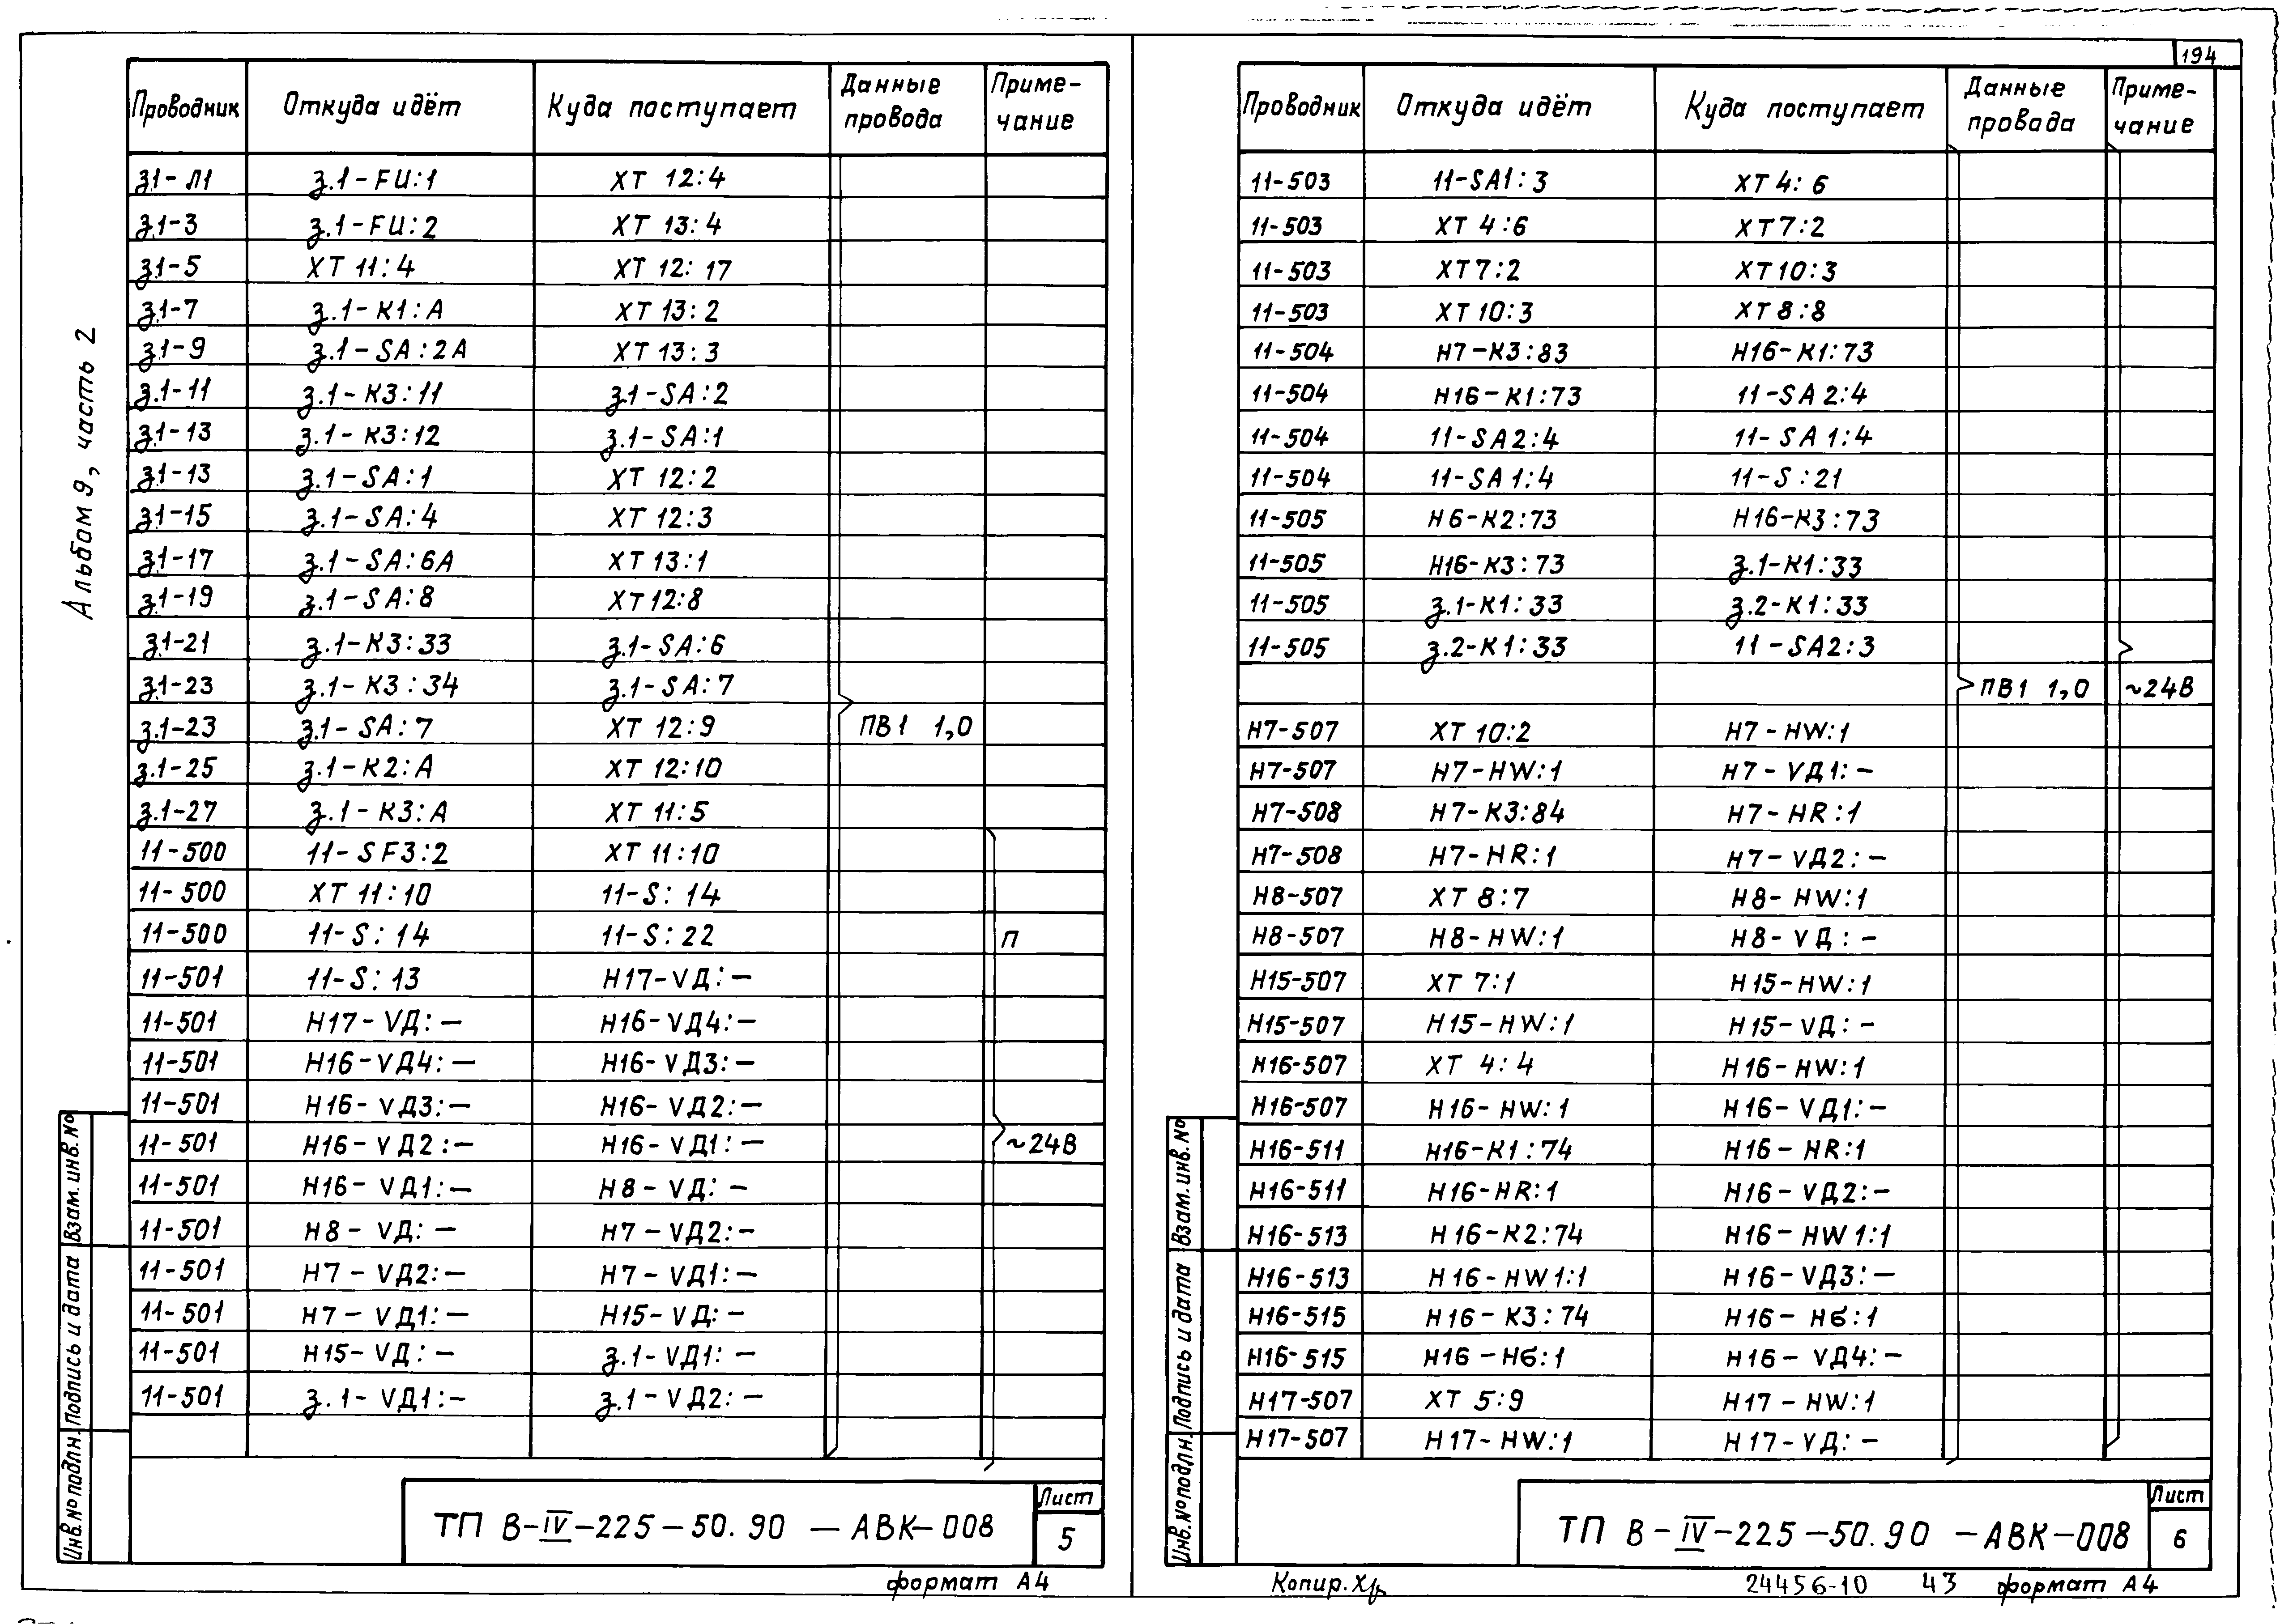 194
Альбом 9, часть 2
Проводник Откуда идёт Куда поступает Данные провода Приме-чание
з.1-Л1 з.1-FU:1 ХТ 12:4
з.1-3 з.1-FU:2 ХТ 13:4
з.1-5 ХТ 11:4 ХТ 12:17
з.1-7 з.1-К1:А ХТ 13:2
з.1-9 з.1-SA:2А ХТ 13:3
з.1-11 з.1-К3:11 з.1-SA:2
з.1-13 з.1-К3:12 з.1-SA:1
з.1-13 з.1-SA:1 ХТ 12:2
з.1-15 з.1-SA:4 ХТ 12:3
з.1-17 з.1-SA:6А ХТ 13:1
з.1-19 з.1-SA:8 ХТ12:8
з.1-21 з.1-К3:33 з.1-SA:6
з.1-23 з.1-К3:34 з.1-SA:7
з.1-23 з.1-SA:7 ХТ 12:9 ПВ1 1,0
з.1-25 з.1-К2:А ХТ 12:10
з.1-27 з.1-К3:А ХТ 11:5
11-500 11-SF3:2 ХТ 11:10
11-500 ХТ 11:10 11-S:14
11-500 11-S:14 11-S:22 П
11-501 11-S:13 Н17-VД:—
11-501 Н17-VД:— Н16-VД4:—
11-501 Н16-VД4:— Н16-VД3:—
11-501 Н16-VД3:— Н16-VД2:—
11-501 Н16-VД2:— Н16-VД1:— ~24В
11-501 Н16-VД1:— Н8-VД:—
11-501 Н8-VД:— Н7-VД2:—
11-501 Н7-VД2:— Н7-VД1:—
11-501 Н7-VД1:— Н15-VД:—
11-501 Н15-VД:— з.1-VД1:—
11-501 з.1-VД1:— з.1-VД2:—
Взам. инв. №
Подпись и дата
Инв. № подлн.
ТП В-IV-225-50.90 — АВК-008
Лист
5
формат А4
Проводник Откуда идёт Куда поступает Данные провода Приме-чание
11-503 11-SA1:3 ХТ 4:6
11-503 ХТ 4:6 ХТ7:2
11-503 ХТ7:2 ХТ10:3
11-503 ХТ 10:3 ХТ 8:8
11-504 Н7-К3:83 Н16-К1:73
11-504 Н16-К1:73 11-SA2:4
11-504 11-SA2:4 11-SA1:4
11-504 11-SA1:4 11-S:21
11-505 Н6-К2:73 Н16-К3:73
11-505 Н16-К3:73 з.1-К1:33
11-505 з.1-К1:33 з.2-К1:33
11-505 з.2-К1:33 11-SA2:3
ПВ1 1,0 ~24В
Н7-507 ХТ 10:2 Н7-HW:1
Н7-507 Н7-HW:1 Н7-VД1:—
Н7-508 Н7-К3:84 Н7-HR:1
Н7-508 Н7-HR:1 Н7-VД2:—
Н8-507 ХТ 8:7 Н8-HW:1
Н8-507 Н8-HW:1 Н8-VД:—
Н15-507 ХТ 7:1 Н15-HW:1
Н15-507 Н15-HW:1 Н15-VД:—
Н16-507 ХТ 4:4 Н16-HW:1
Н16-507 Н16-HW:1 Н16-VД1:—
Н16-511 Н16-К1:74 Н16-HR:1
Н16-511 Н16-HR:1 Н16-VД2:—
Н16-513 Н16-К2:74 Н16-HW1:1
Н16-513 Н16-HW1:1 Н16-VД3:—
Н16-515 Н16-К3:74 Н16-НG:1
Н16-515 Н16-НG:1 Н16-VД4:—
Н17-507 ХТ 5:9 Н17-HW:1
Н17-507 Н17-HW:1 Н17-VД:—
Взам. инв. №
Подпись и дата
Инв. № подлн.
ТП В-IV-225-50.90 — АВК-008
Лист
6
Копир. 24456-10 43 формат А4